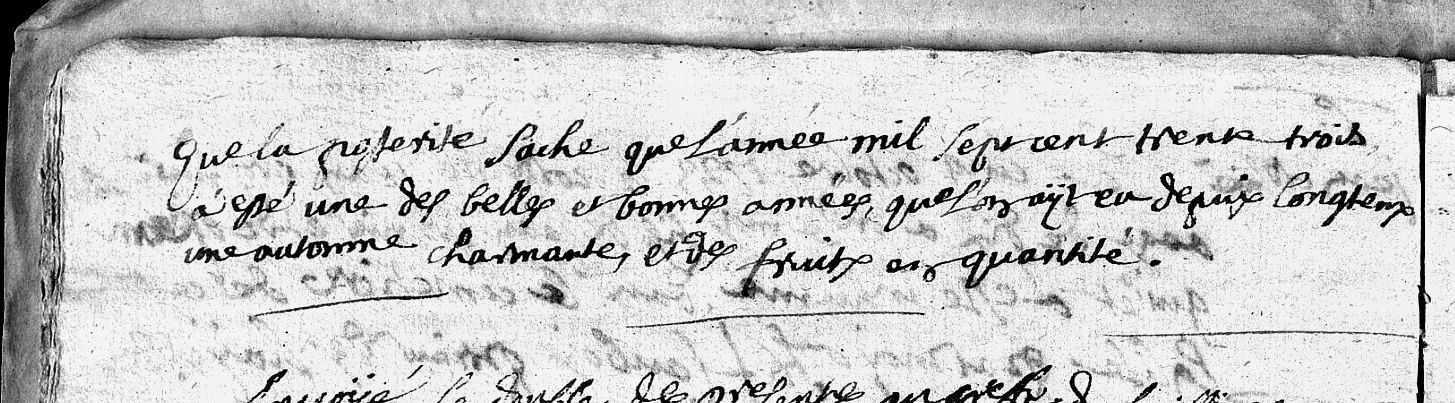 Que la posterité sache que l'année mil sept cent trente trois
a esté une des belles et bonnes années, que l'on ayt eu depuis longtemps
une automne charmante, et des fruits en quantité.
Envoÿé le double des presentes au greffe